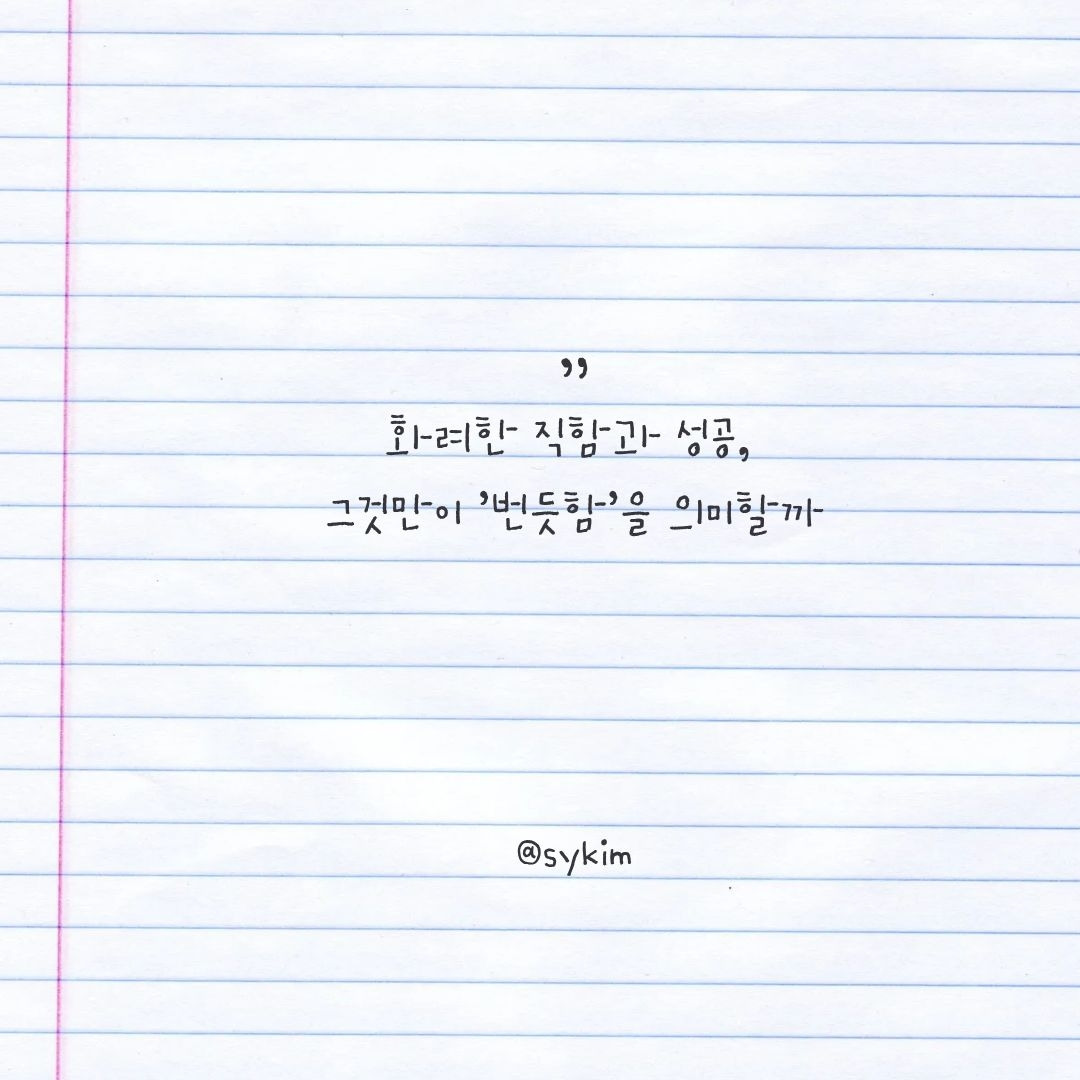 ”
화려한 직함과 성공,
그것만이 ’번듯함’을 의미할까
@sykim